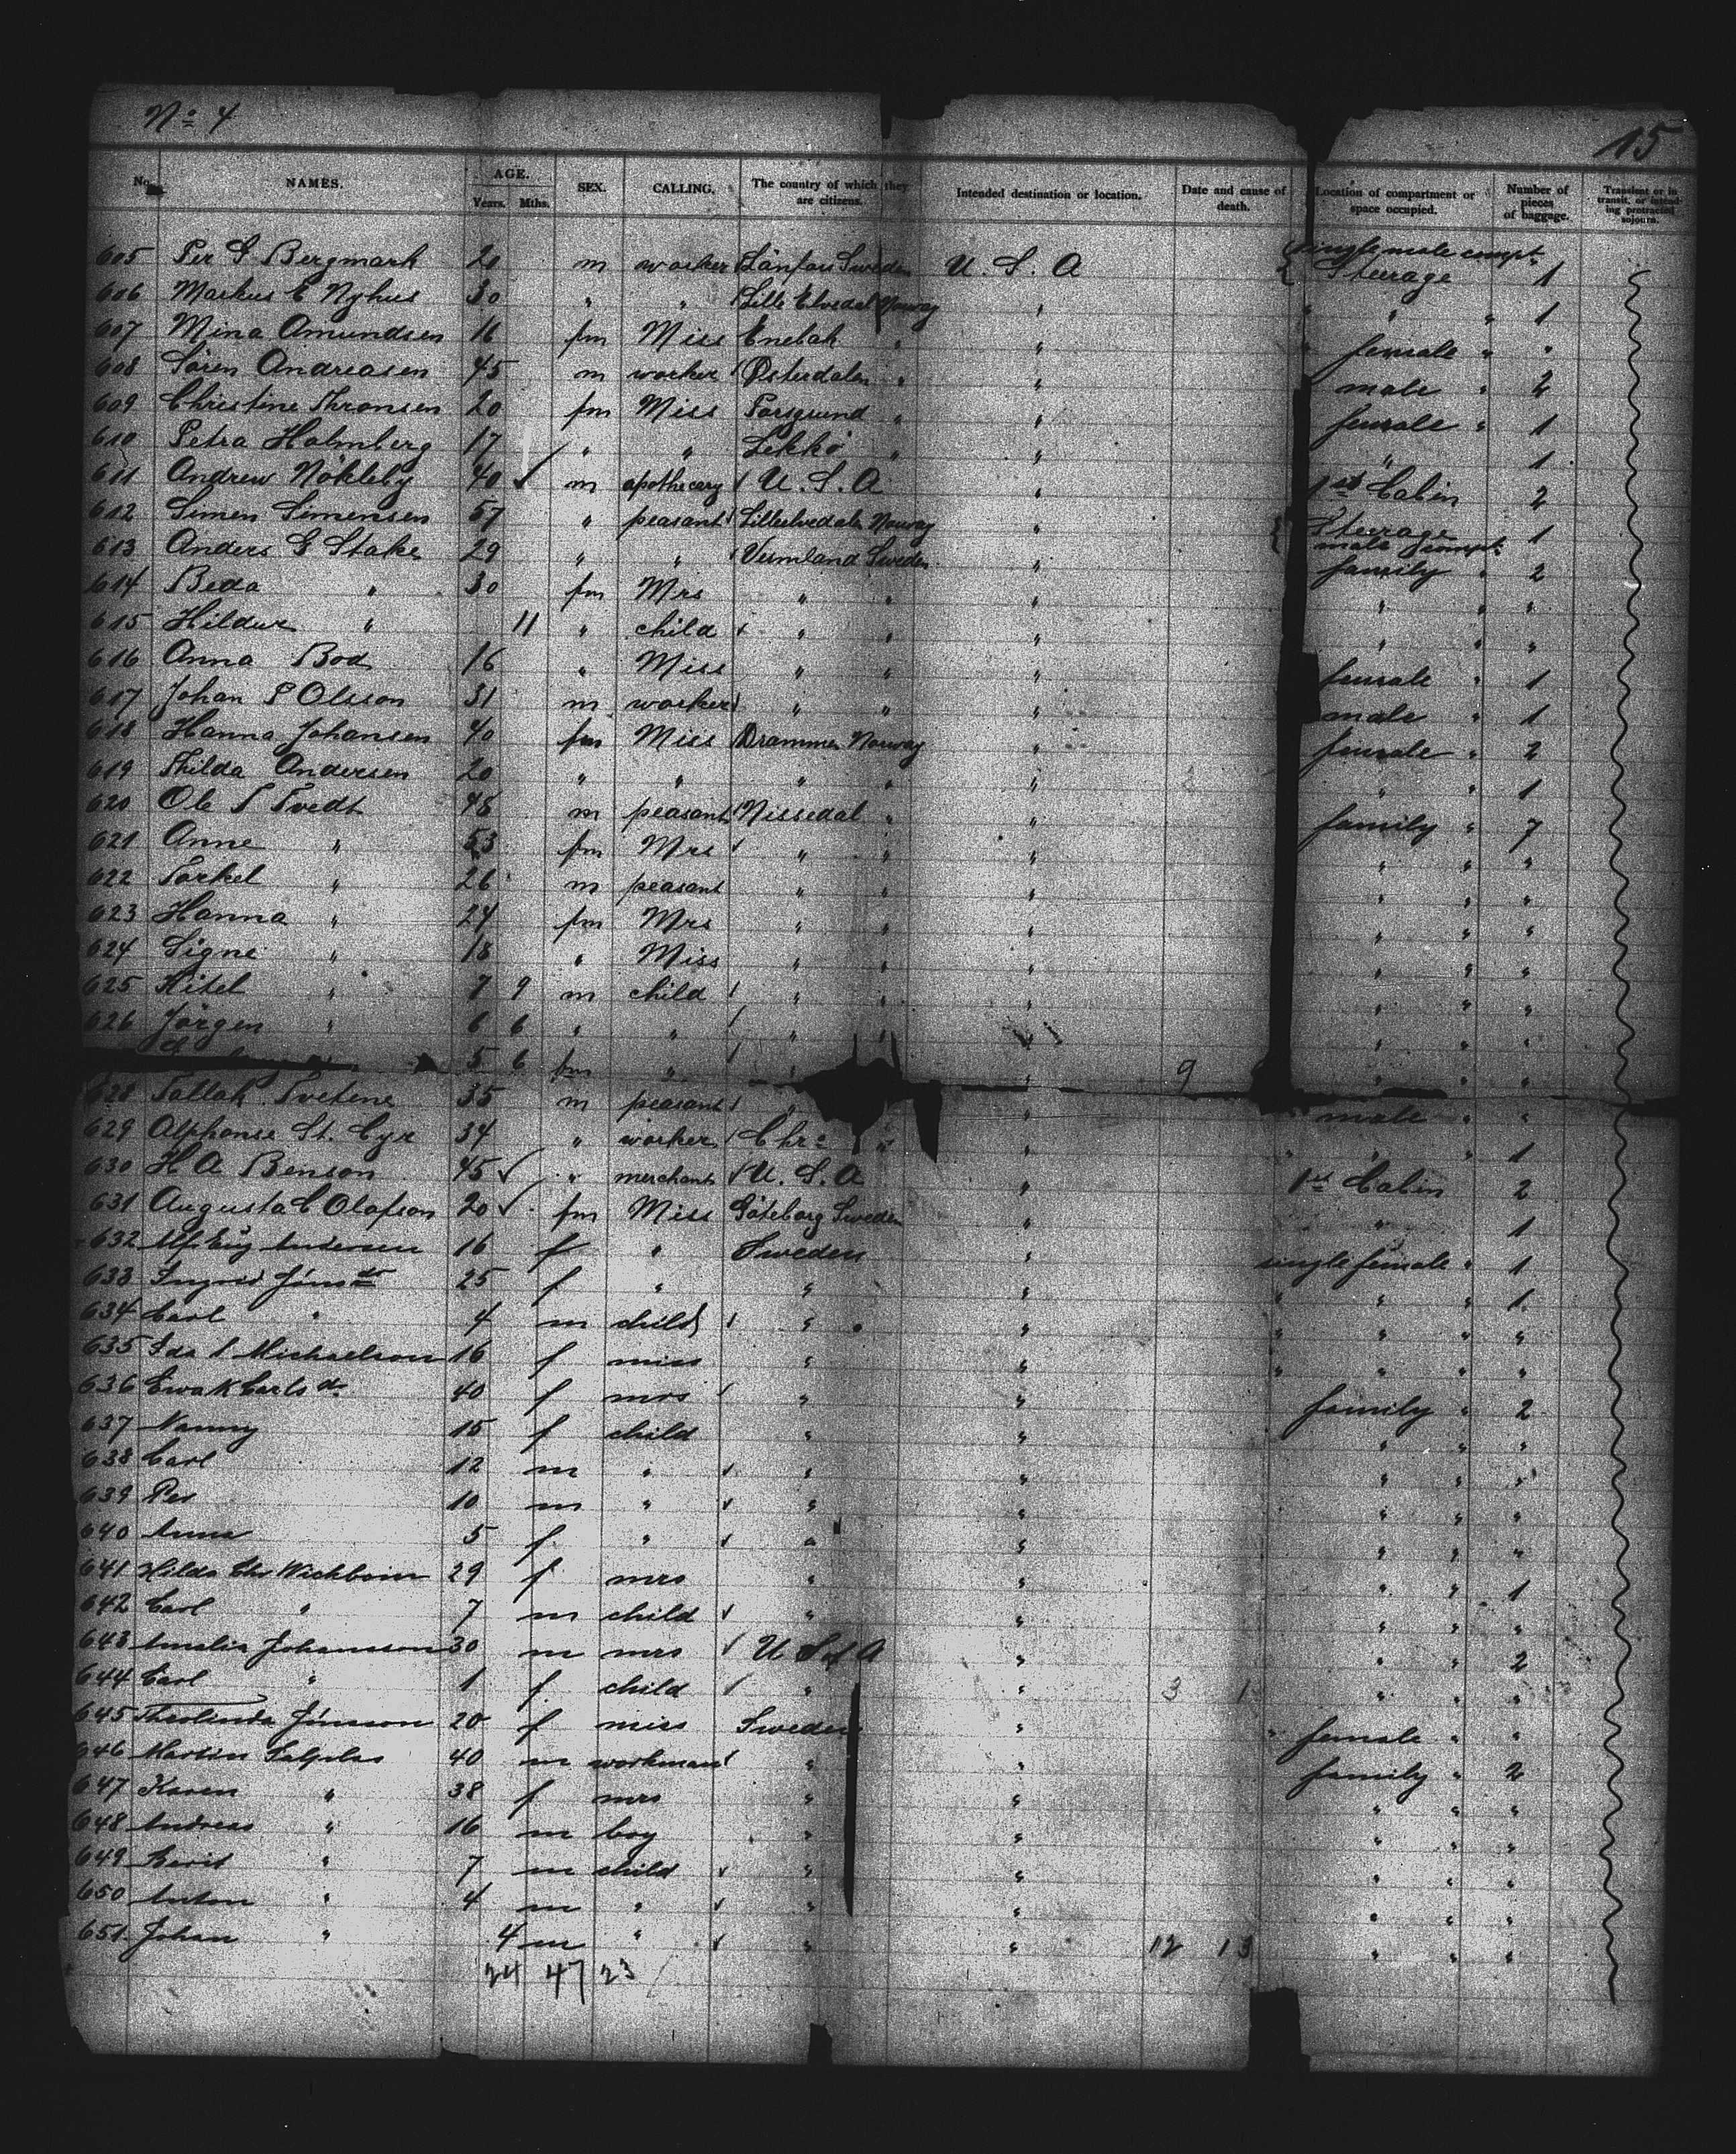 No 4
15
No. NAMES. AGE. Years. Mths. SEX. CALLING. The country of which they are citizens. Intended destination or location. Date and cause of death. Location of compartment or space occupied. Number of pieces of baggage. Transient or in transit, or intending protracted sojourn.
605 Per G Bergmark 20 m worker Sweden U. S. A single male compt. Steerage 1
606 Markus E Nyhus 30 " " Lille Elvedal Norway " " " 1
607 Mina Amundsen 16 fm Miss Enebak " " female " "
608 Sören Andreasen 45 m worker Østerdalen " " male " 2
609 Christine Thronsen 20 fm Miss Porsgrund " " female " 1
610 Petra Holmberg 17 " " " " " 1
611 Andrew Nökleby 40 m apothecary U. S. A " 1st Cabin 2
612 Simen Simensen 57 " peasant Lilleelvedalen Norway " Steerage male compt. 1
613 Anders G Stake 29 " " Vermland Sweden " family " 2
614 Beda " 30 fm Mrs " " " " " "
615 Hildur " 11 " child " " " " " "
616 Anna Bod 16 " Miss " " " female " 1
617 Johan P Olsson 31 m worker " " " male " 1
618 Hanna Johansen 40 fm Miss Drammen Norway " female " 2
619 Thilda Andersen 20 " " " " " " " 1
620 Ole T Tvedt 48 m peasant Nissedal " " family " 7
621 Anne " 53 fm Mrs " " " " " "
622 Torkel " 26 m peasant " " " " " "
623 Hanna " 24 fm Mrs " " " " " "
624 Signe " 18 " Miss " " " " " "
625 Kitel " 7 9 m child " " " " " "
626 Jörgen " 6 6 " " " " " " "
5 6 fm " " " 9 " "
628 Tallak Tvetene 35 m peasant " " male " "
629 Alphonse St. Cyr 34 " worker Chra " " " " 1
630 H A Benson 45 " merchant U. S. A " 1st Cabin 2
631 Augusta C Olafson 20 fm Miss Göteborg Sweden " " 1
632 Andersson 16 f " Sweden " single female " 1
633 Ingrid Jönsdr 25 f " " " " " " 1
634 Carl " 4 m child " " " " " "
635 Ida Michaelsson 16 f miss " " " " " "
636 Ewa K Carlsdr 40 f mrs " " family " 2
637 Nanny 15 f child " " " " "
638 Carl 12 m " " " " " "
639 Per 10 m " " " " " "
640 Anna 5 f " " " " " "
641 Hilda 29 f mrs " " " " 1
642 Carl " 7 m child " " " " "
643 Amalia Johansson 30 m mrs U S of A " " " 2
644 Carl " 1 f child " " 3 1 " " "
645 Jönsson 20 f miss Sweden " " female " "
646 Martin 40 m workman " " family " 2
647 Karen " 38 f mrs " " " " "
648 Andreas " 16 m boy " " " " "
649 " 7 m child " " " " "
650 Anton " 4 m " " " " " "
651 Johan " 4 m " " " 12 13 " " "
24 47 23